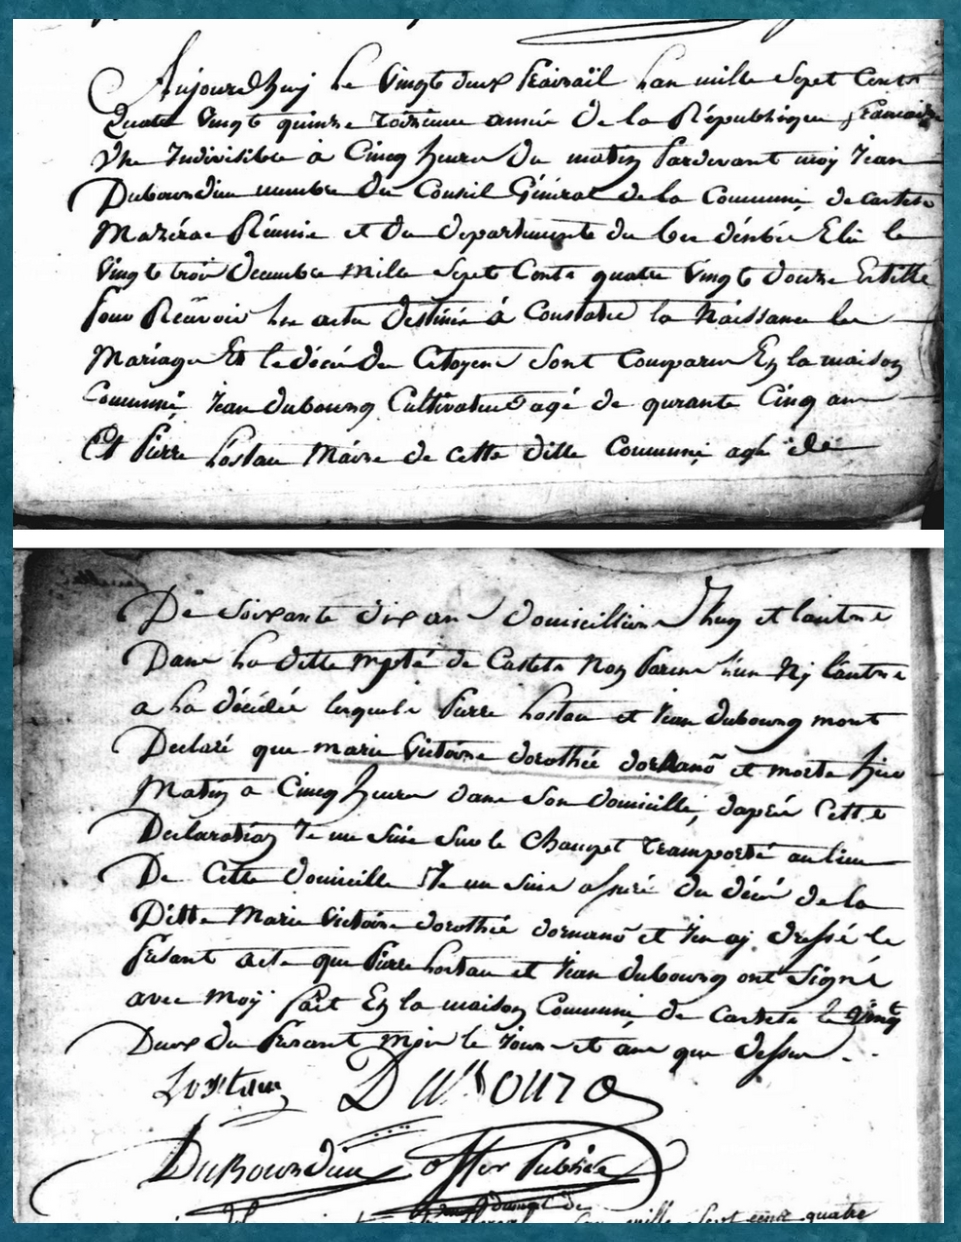 Aujourdhuy le vingt deux prairail lan mille sepet cents
quatre vingt quinze troisieme année de la République francaise
une Indivisible a Cinq heures du matin pardevant moy Jean
Dubourdieu membre du Conseil Général de la Commune de castets
Mazérac Réunie et du departemente du bec d'enbés Elu le
vingt troix decembre mille sepet Cents quatre vingt douze
pour Recevoir les actes destinés á Constater la Naissance les
Mariages Et le décés des Citoyens sont Comparus En la maison
Commune Jean dubourg Cultivateur agé de qurante Cinq ans
Et pierre lostau Maire de cette ditte Commune agé de
De soixante dix ans domicilliers et lautre
Dans la ditte de Castets Non parens l'un Ny l'autre
a la décédée lesquels pierre lostau et Jean dubourg mont
Declaré que marie victoire dorothée dornano et morte hier
Matin a Cinq heures dans son domicille, daprés Cette
Declaration Je me suis sur le Champet transporté au lieu
De Cette domicille Je me suis assuré du décé de la
Ditte Marie Victoire dorothée dornano et J'en aj dressé le
présant acte que pierre lostau et Jean dubourg ont signé
avec moÿ fait En la maison Commune de castets le vingt
Deux du présant mois le Jour et áns que dessus
Lostau DuBourg
DuBourdieu offier publice
mille sept cent quatre